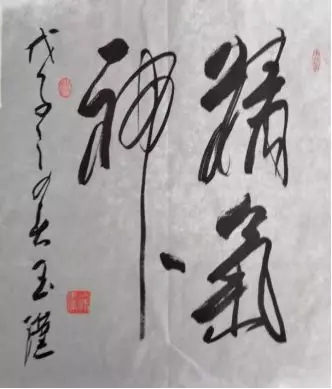 精氣
神
戊子之 玉漢